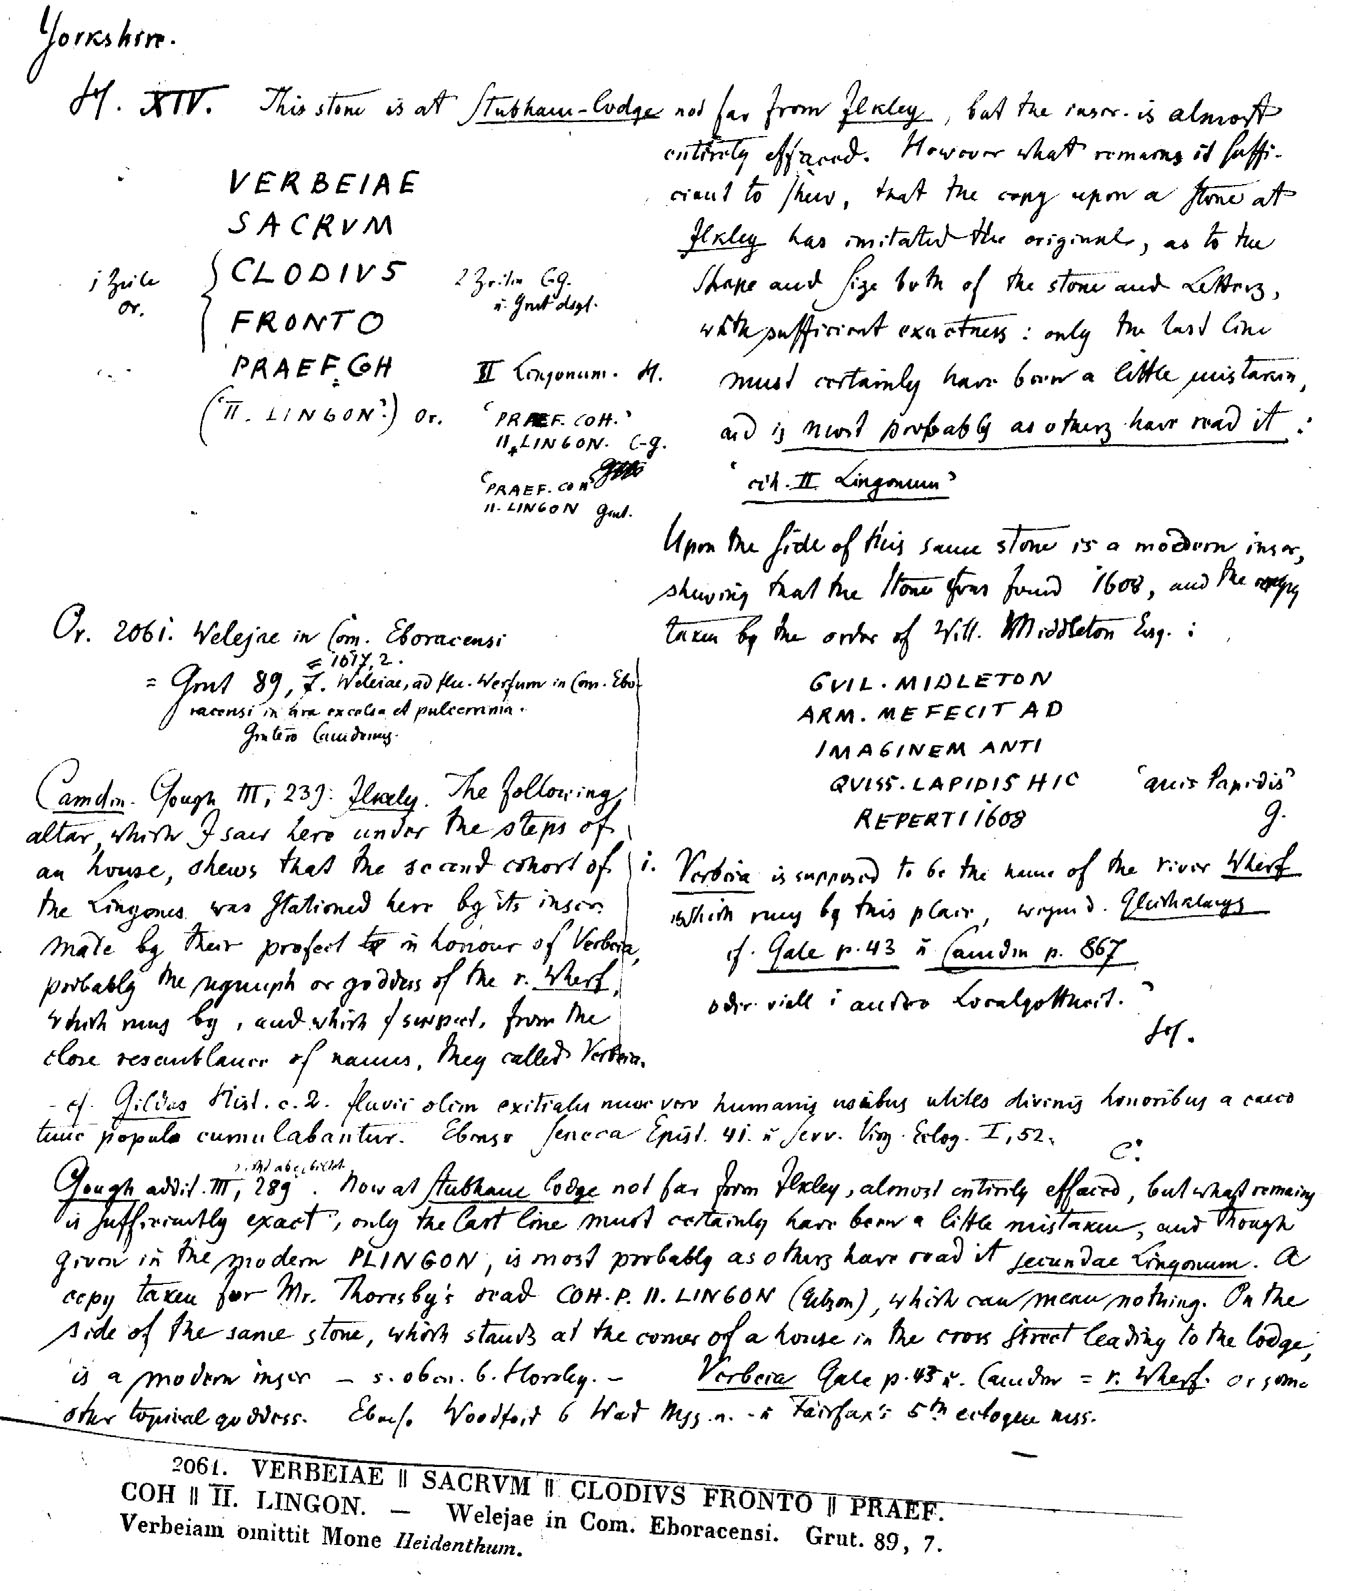 Yorkshire.
H. XIV. This stone is at Stubham-lodge not far from Ilkley, but the inscr. is almost
entirely effaced. However what remains is suffi-
cient to shew, that the copy upon a stone at
Ilkley has imitated the original, as to the
shape and size both of the stone and Letters,
with sufficient exactness: only the last line
must certainly have been a little mistaken,
and is most probably as others have read it:
'coh. II Lingonum'
VERBEIAE
SACRVM
1 Zeile or. { CLODIVS 2 Zeilen C-g.
FRONTO
PRAEF. COH II Lingonum. H.
('II. LINGON'.) Or. 'PRAEF. COH.'
II. LINGON. C-g.
'PRAEF. COH
II. LINGON Grut.
Upon the side of this same stone is a modern inscr,
shewing that the stone was found 1608, and the copy
taken by the order of Will. Middleton Esq.:
GVIL. MIDLETON
ARM. ME FECIT AD
IMAGINEM ANTI
QVISS. LAPIDIS HIC 'quis lapidis'
REPERTI 1608 G.
Or. 2061. Welejae in Com. Eboracensi
= 1017, 2.
= Grut 89, 7. Weleiae, ad flu. Werfum in Com. Ebo-
racensi in ara excelsa et pulcerrima.
Grutero Camdenus.
Camden. Gough III, 239: Ilkely. The following
altar, which I saw here under the steps of
an house, shews that the second cohort of
the Lingones was stationed here by its inscr.
made by their prefect in honour of Verbeia,
probably the nymph or goddess of the r. Wherf,
which runs by, and which I suspect, from the
close resemblance of names, they called Verbeia.
Verbeia is supposed to be the name of the river Wherf
which runs by this place, wegend.
cf. Gale p. 43 u Camden p. 867
oder viell 1 andre Localgottheit.
H.
- cf. Gildas Hist. c. 2. fluvii olim exitiales nunc vero humanis usibus utiles divinis honoribus a caeco
tunc populo cumulabantur. Ebenso Seneca Epist. 41. u Serv. Virg. Eclog. I, 52.
C.
Gough addit. III, 289. Now at Stubham lodge not far from Ilkley, almost entirely effaced, but what remains
is sufficiently exact, only the last line must certainly have been a little mistaken, and though
given in the modern PLINGON, is most probably as others have read it secundae Lingonum. A
copy taken for Mr. Thoresby's read COH. P. II. LINGON (Gibson), which can mean nothing. On the
side of the same stone, which stands at the corner of a house in the cross street leading to the lodge,
is a modern inscr - s. oben. b. Horsley. - Verbeia Gale p. 43 u. Camden = r. Wherf. or some
other topical goddess. Woodford 6 Mss. - u Fairfax's 5th eclogue mss.
2061. VERBEIAE || SACRVM || CLODIVS FRONTO || PRAEF.
COH || II. LINGON. — Welejae in Com. Eboracensi. Grut. 89, 7.
Verbeiam omittit Mone Heidenthum.